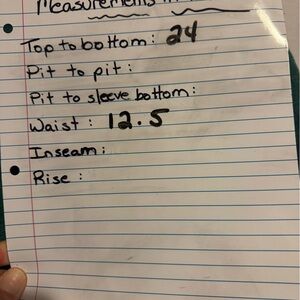 Measurements in
Top to bottom: 24
Pit to pit:
Pit to sleeve bottom:
Waist: 12.5
Inseam:
Rise: